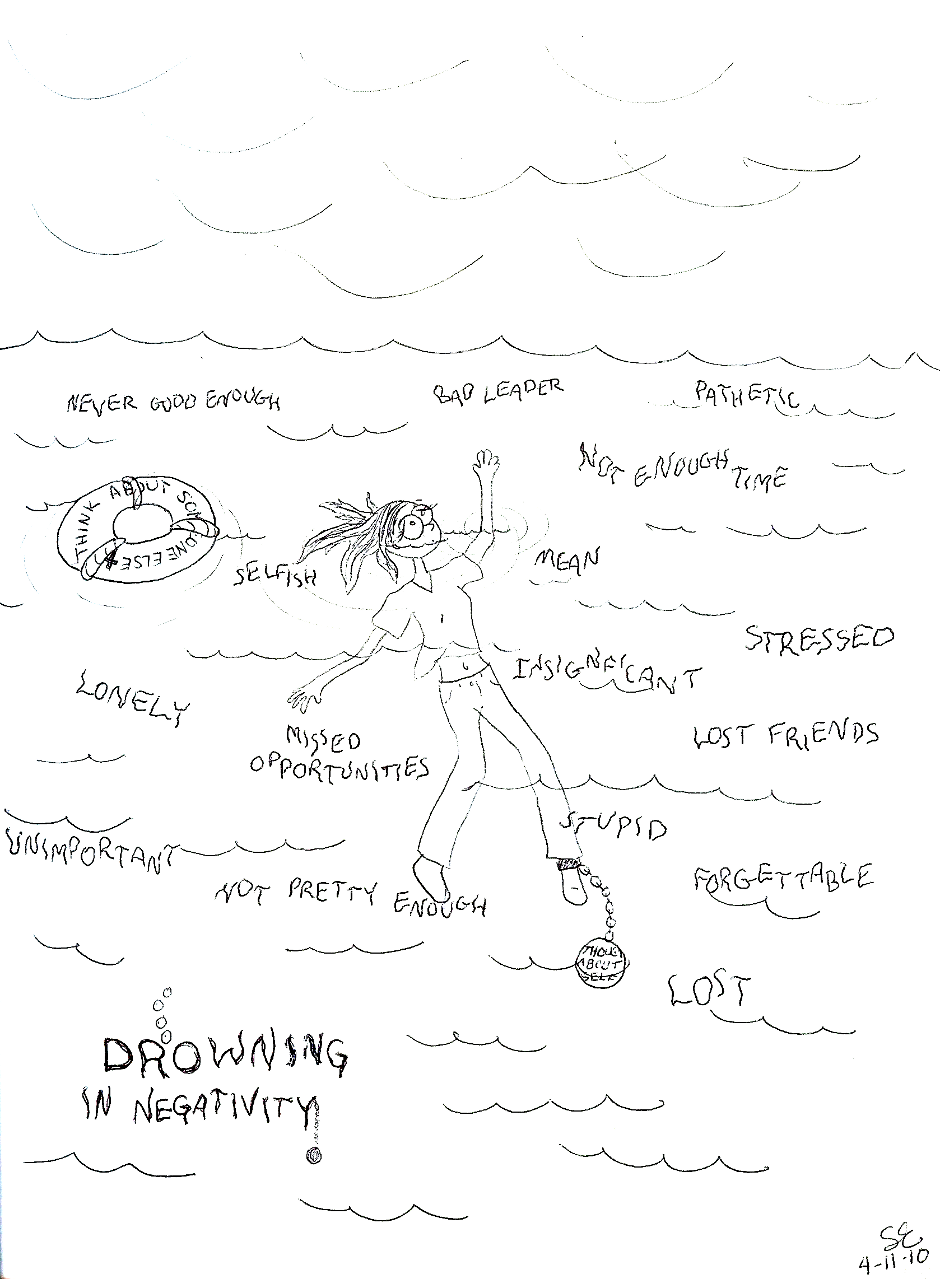 NEVER GOOD ENOUGH
BAD LEADER
PATHETIC
NOT ENOUGH TIME
THINK ABOUT SOMEONE ELSE
SELFISH
MEAN
STRESSED
INSIGNIFICANT
LONELY
MISSED
OPPORTUNITIES
LOST FRIENDS
STUPID
UNIMPORTANT
NOT PRETTY ENOUGH
FORGETTABLE
ABOUT
SELF
LOST
DROWNING
IN NEGATIVITY
SE
4-11-10